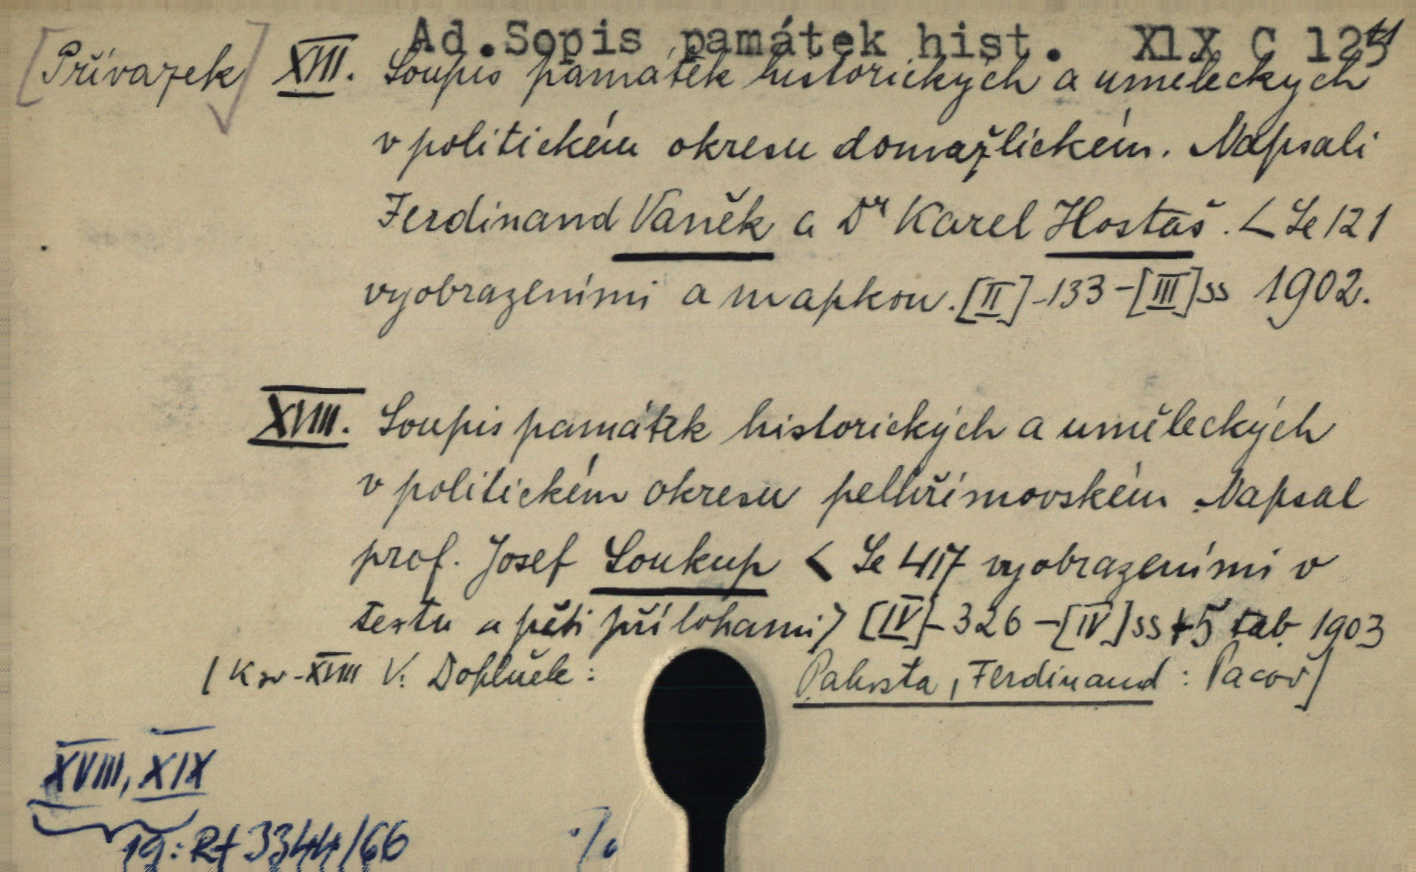 Ad.Sopis památek hist. XlX C 123
[Přívazek] XVII. Soupis památek historických a uměleckých
v politickém okresu domažlickém. Napsali
Ferdinand Vaněk a Dr Karel Hostaš. < Se 121
vyobrazeními a mapkou. [II]-133-[III] ss 1902.
XVIII. Soupis památek historických a uměleckých
v politickém okresu pelhřimovském Napsal
prof. Josef Soukup < Se 417 vyobrazeními v
textu a pěti přílohami> [IV]-326-[IV] ss + 5 tab 1903
[K sv-XVIII V: Doplněk: Palusta, Ferdinand: Pacov]
XVIII, XIX
19: Rf 3344/66
./.